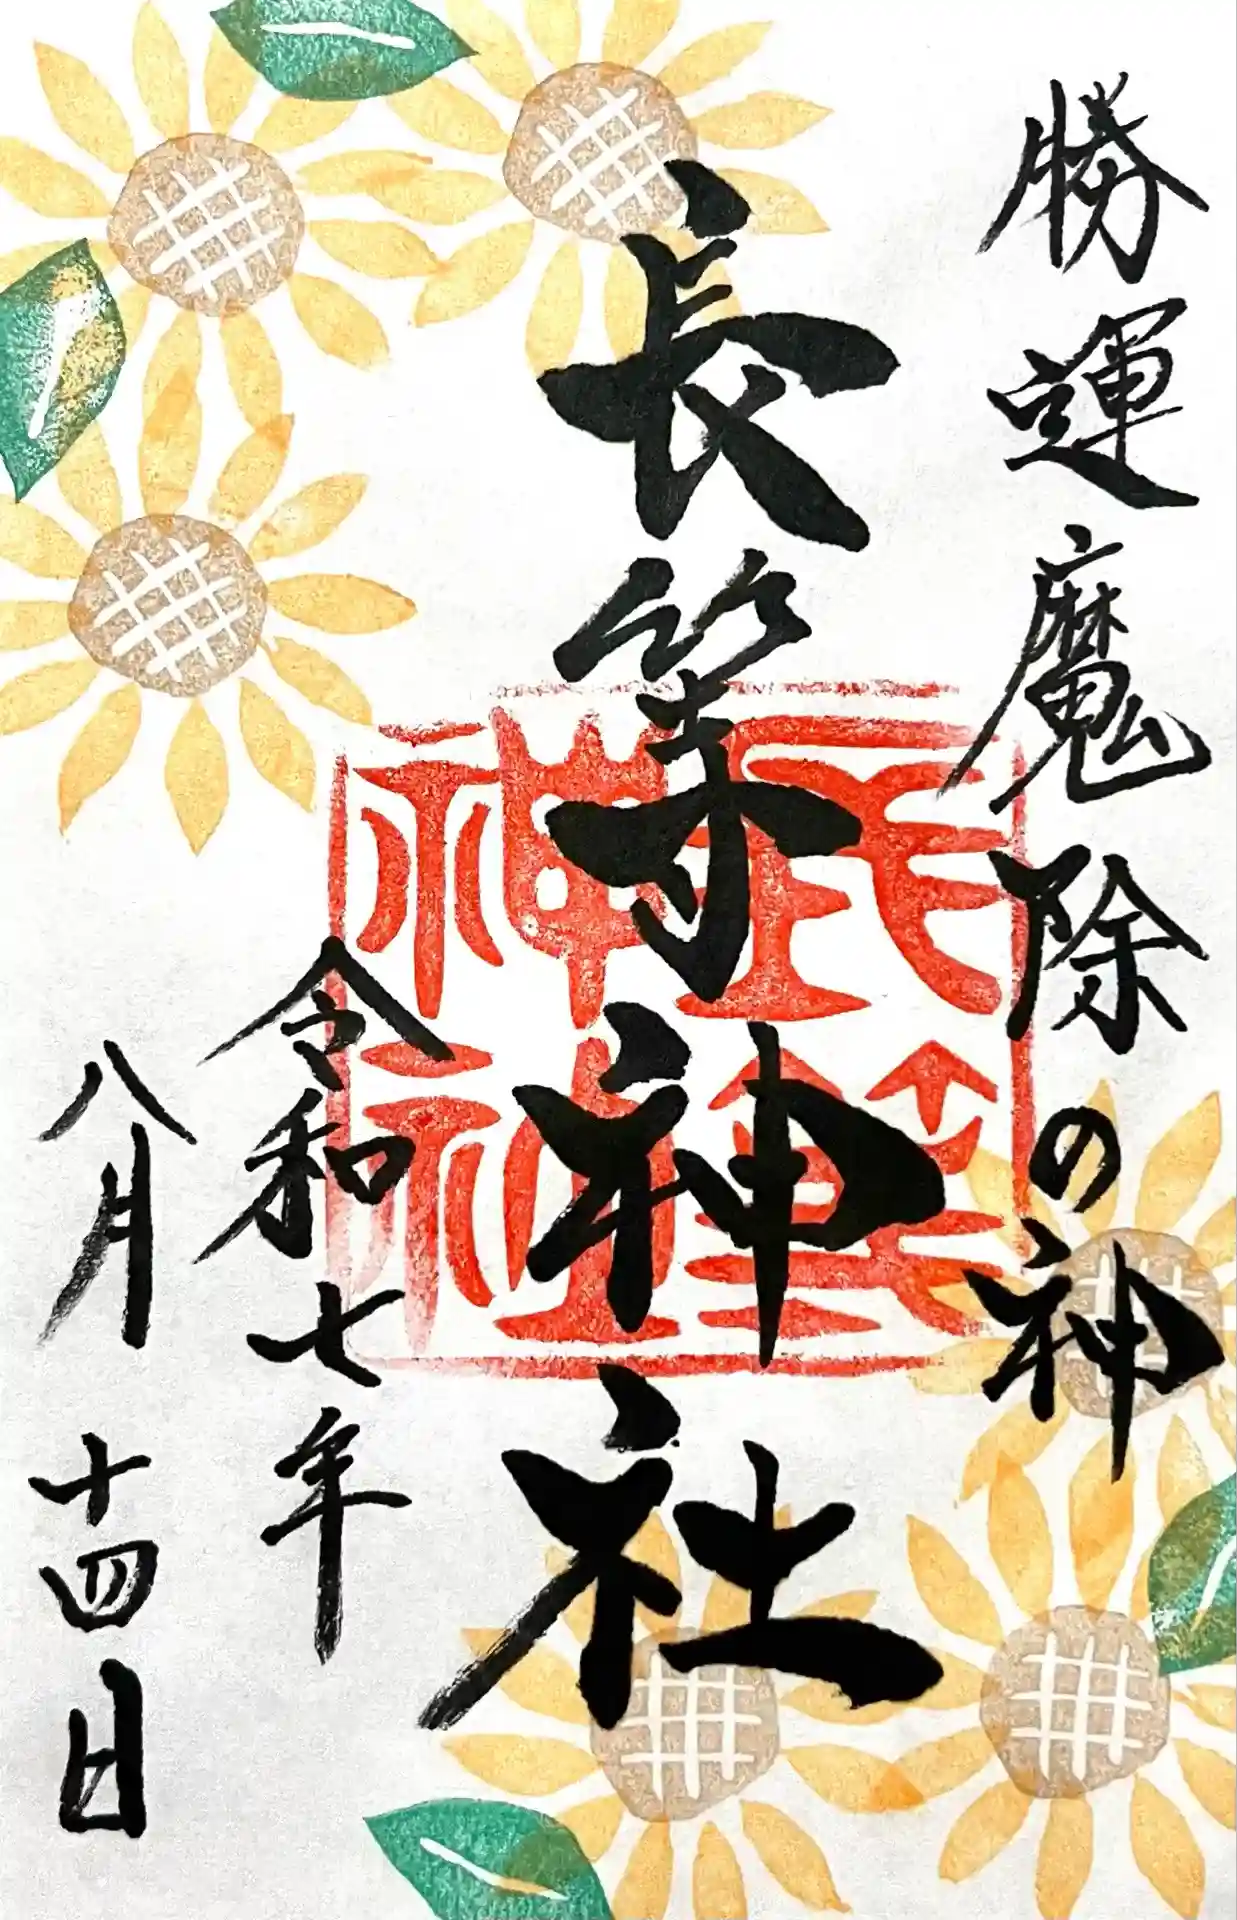 勝運魔除の神
長等神社
令和七年
八月十四日
神社